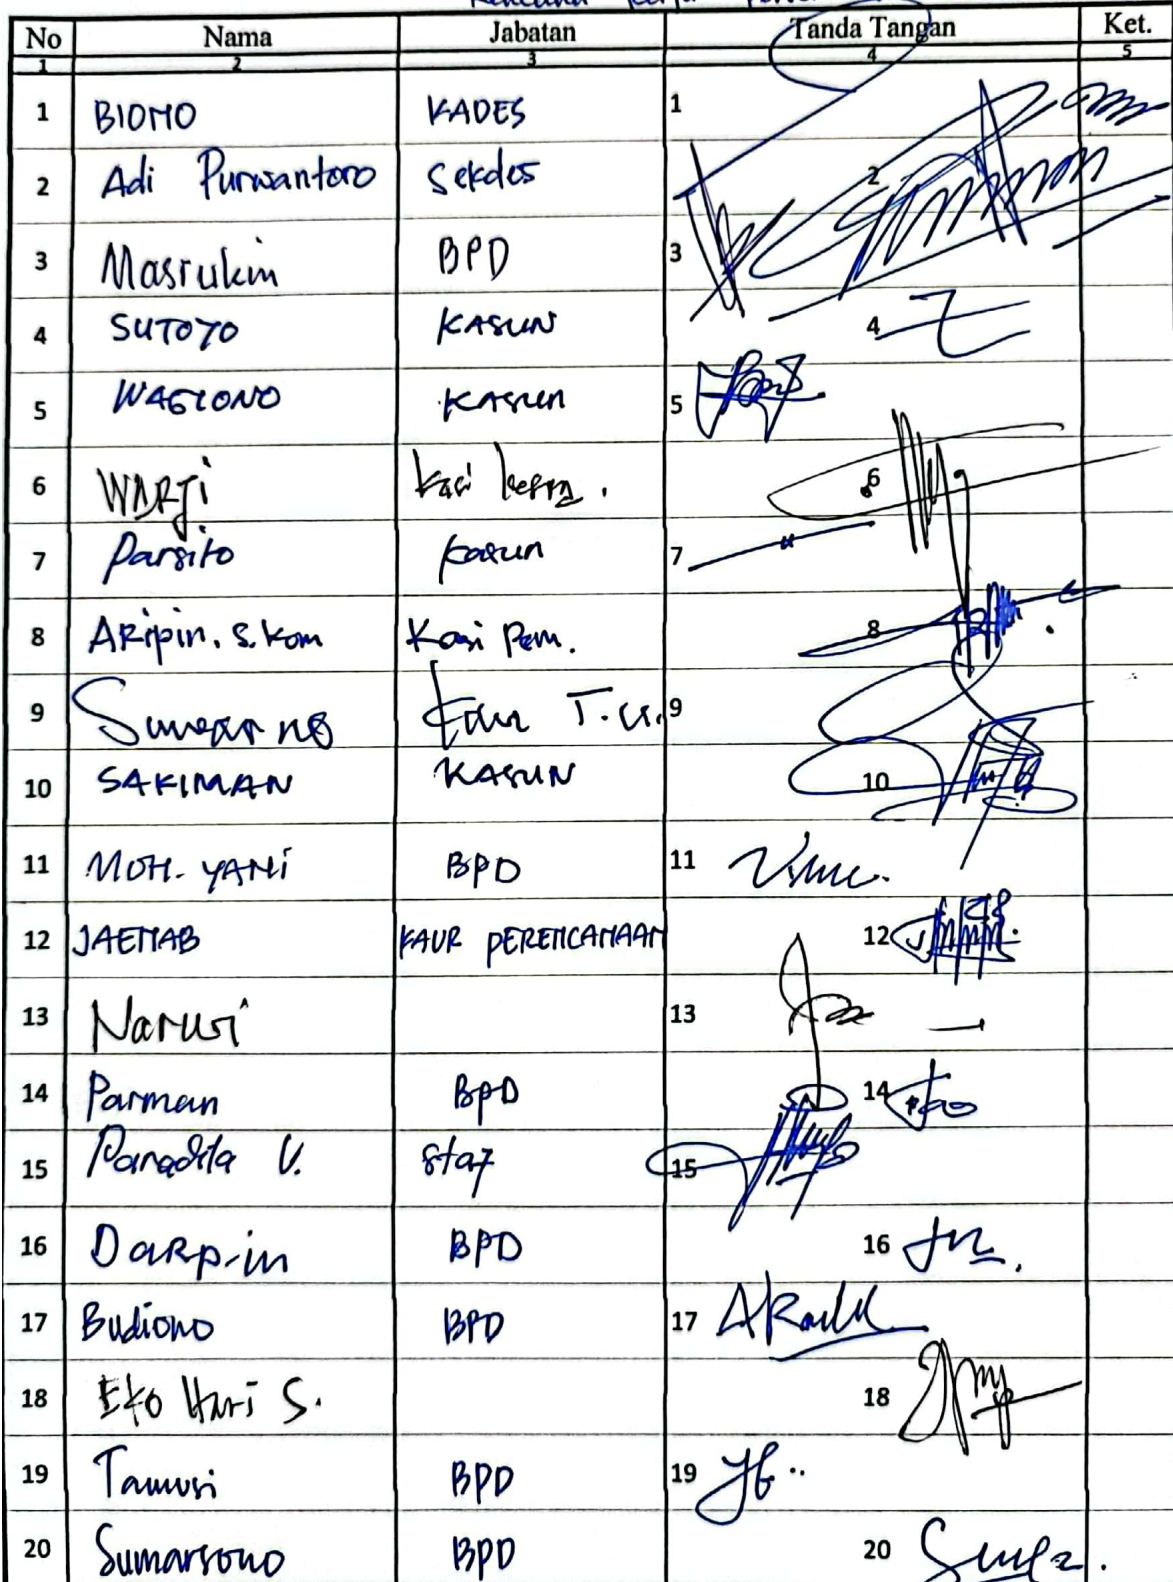 No Nama Jabatan Tanda Tangan Ket.
1 2 3 4 5
1 BIOMO KADES 1
2 Adi Purwantoro Sekdes 2
3 Masrukin BPD 3
4 SUTOYO KASUN 4
5 WAGIONO KASUN 5
6 WARJi Kasi kesra. 6
7 Parsito Kasun 7
8 ARipin. S.Kom Kasi Pem. 8
9 Suwarno Kaur T.U. 9
10 SAKIMAN KASUN 10
11 MOH. YANi BPD 11
12 JAENAB KAUR PERENCANAAN 12
13 Narwi 13
14 Parman BPD 14
15 Paradita V. Staf 15
16 DARPin BPD 16
17 Budiono BPD 17
18 EKO HARi S. 18
19 Tamusi BPD 19
20 Sumarsono BPD 20